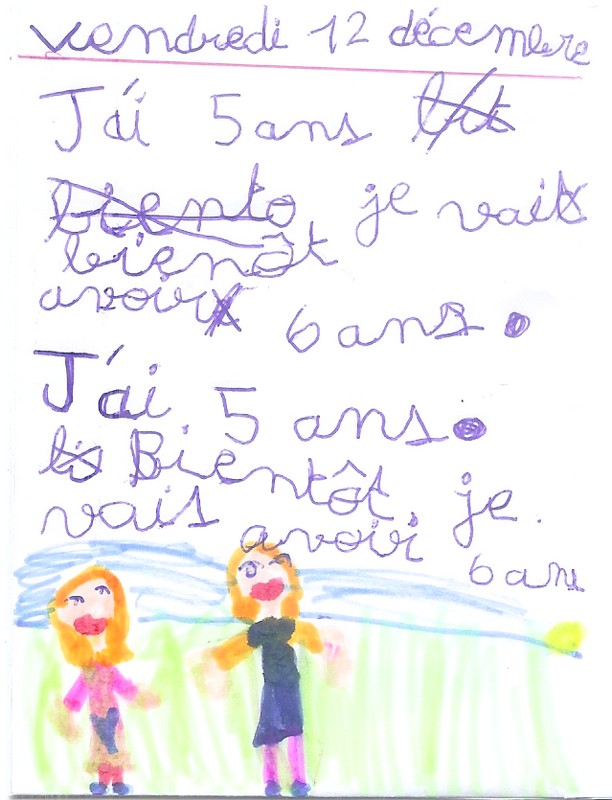 vendredi 12 décembre
J'ai 5 ans bit
biento je vais
bientôt
avoir 6 ans.
J'ai 5 ans.
bi Bientôt je
vais avoir
6 ans